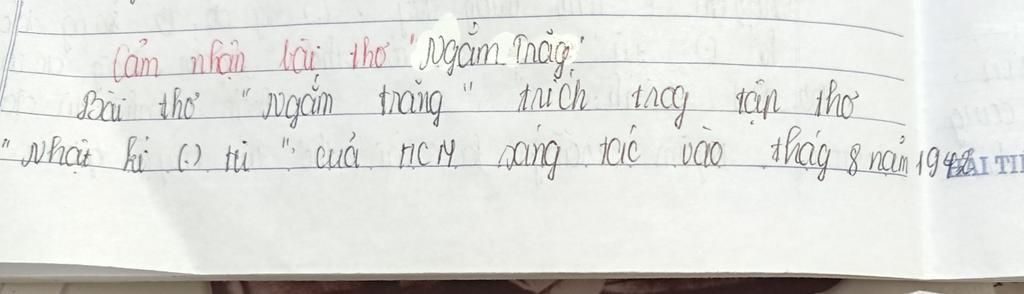 Cảm nhận bài thơ "Ngắm Trăg"
Bài thơ "Ngắm trăng" trích trog tập thơ
"Nhật kí (.) tù" của HCM sáng tác vào thág 8 năm 1942
ÀI TI